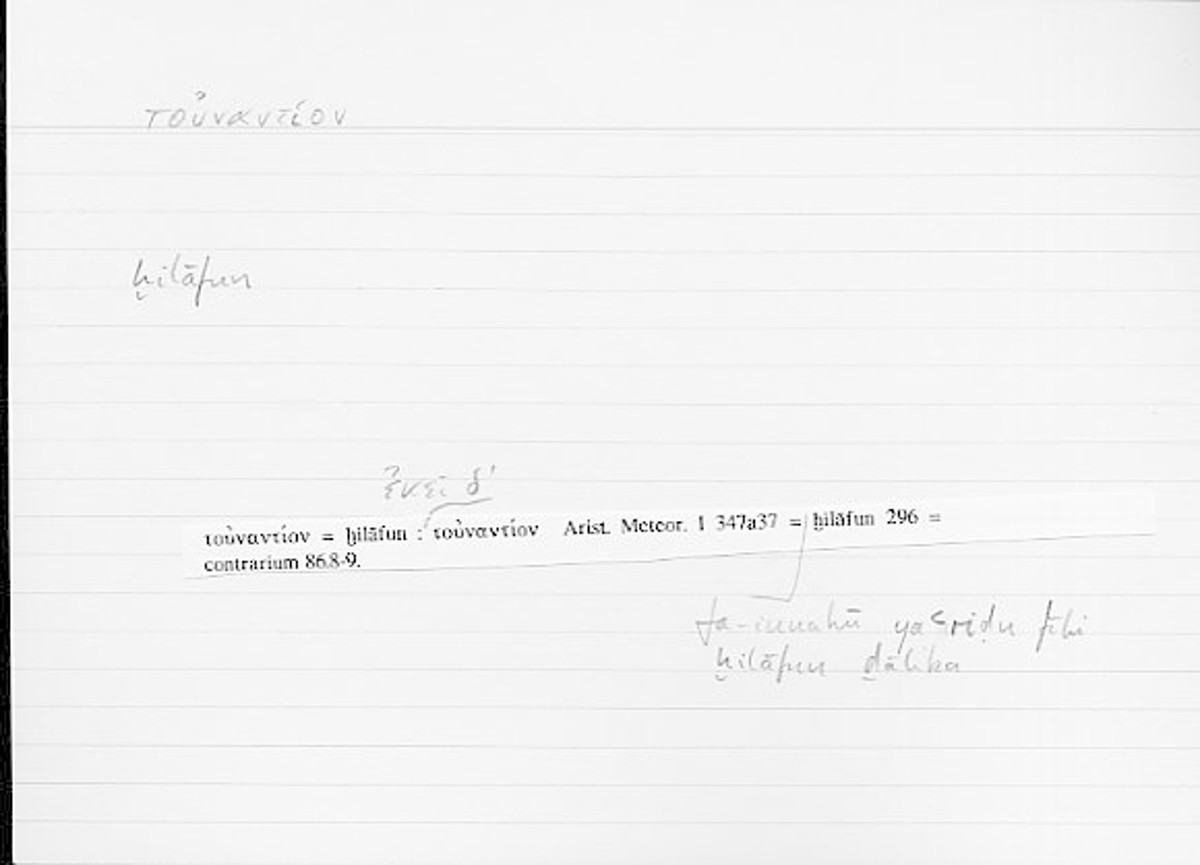 τοὐναντίον
ḫilāfun
ἐκεῖ δ'
τοὐναντίον = ḫilāfun : τοὐναντίον Arist. Meteor. I 347a37 = ḫilāfun 296 =
contrarium 86.8-9.
fa-innahū yaʿriḍu fīhi
ḫilāfun ḏālika